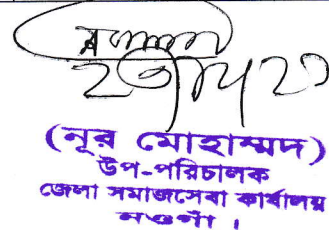 (নূর মোহাম্মদ)
উপ-পরিচালক
জেলা সমাজসেবা কার্যালয়
নওগাঁ ।